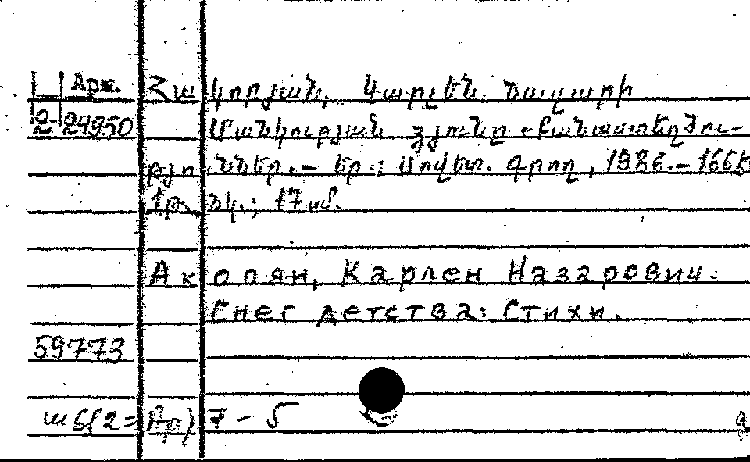 Арм. Հակոբյան, Կարլեն Նազարի
2-24950 Մանկության ձյունը : Բանաստեղծու-
թյուններ. — Եր.; Սովետ. գրող, 1986. — 166 էջ
նկ.; 17 սմ.
Акопян, Карлен Назарович.
Снег детства: Стихи.
59773
Ш6(2=Ар)7-5